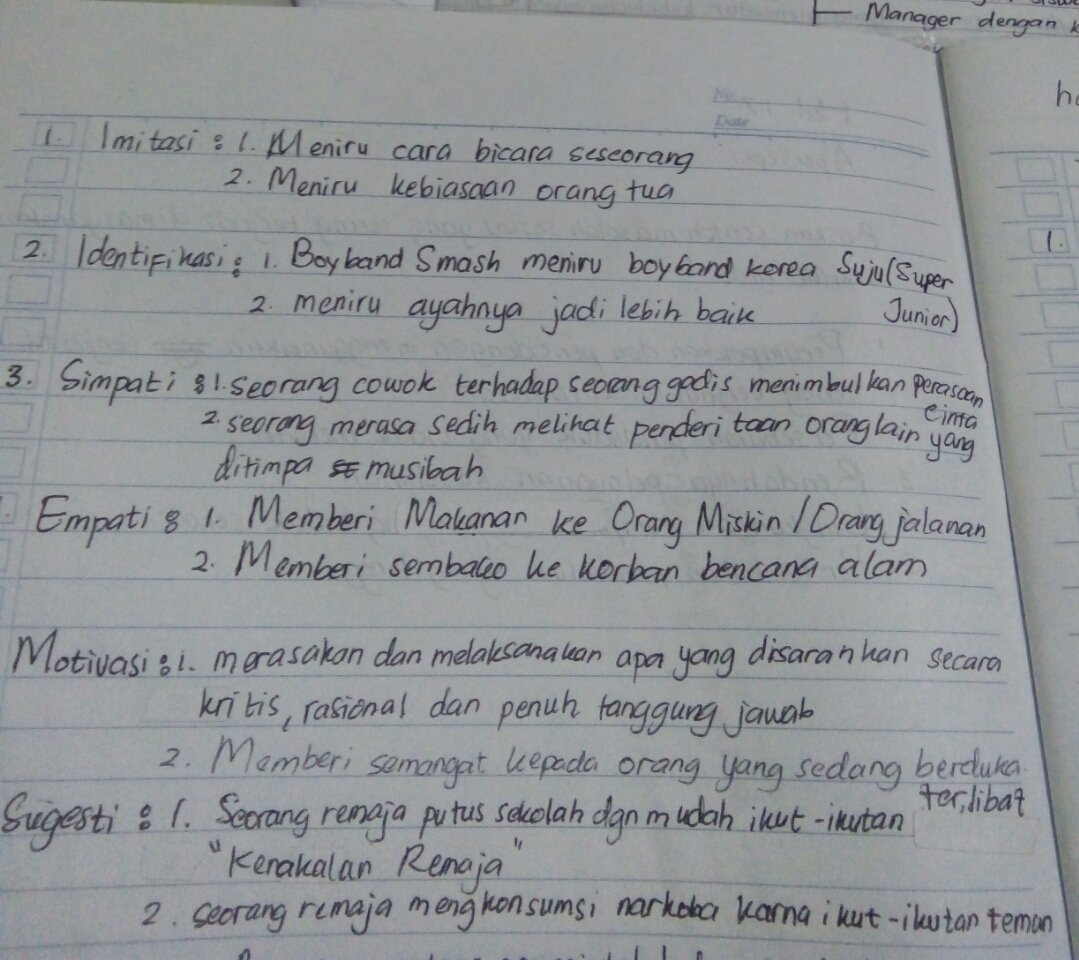 Manager dengan
No.
Date
1. Imitasi : 1. Meniru cara bicara seseorang
2. Meniru kebiasaan orang tua
2. Identifikasi : 1. Boyband Smash meniru boyband korea Suju (Super
Junior)
2. meniru ayahnya jadi lebih baik
3. Simpati : 1. seorang cowok terhadap seorang gadis menimbulkan perasaan
cinta
2. seorang merasa sedih melihat penderitaan orang lain yang
ditimpa musibah
Empati : 1. Memberi Makanan ke Orang Miskin / Orang jalanan
2. Memberi sembako ke korban bencana alam
Motivasi : 1. merasakan dan melaksanakan apa yang disarankan secara
kritis, rasional dan penuh tanggung jawab
2. Memberi semangat kepada orang yang sedang berduka.
Sugesti : 1. Seorang remaja putus sekolah dgn mudah ikut-ikutan terlibat
"Kenakalan Remaja"
2. seorang remaja mengkonsumsi narkoba karna ikut-ikutan teman
1.